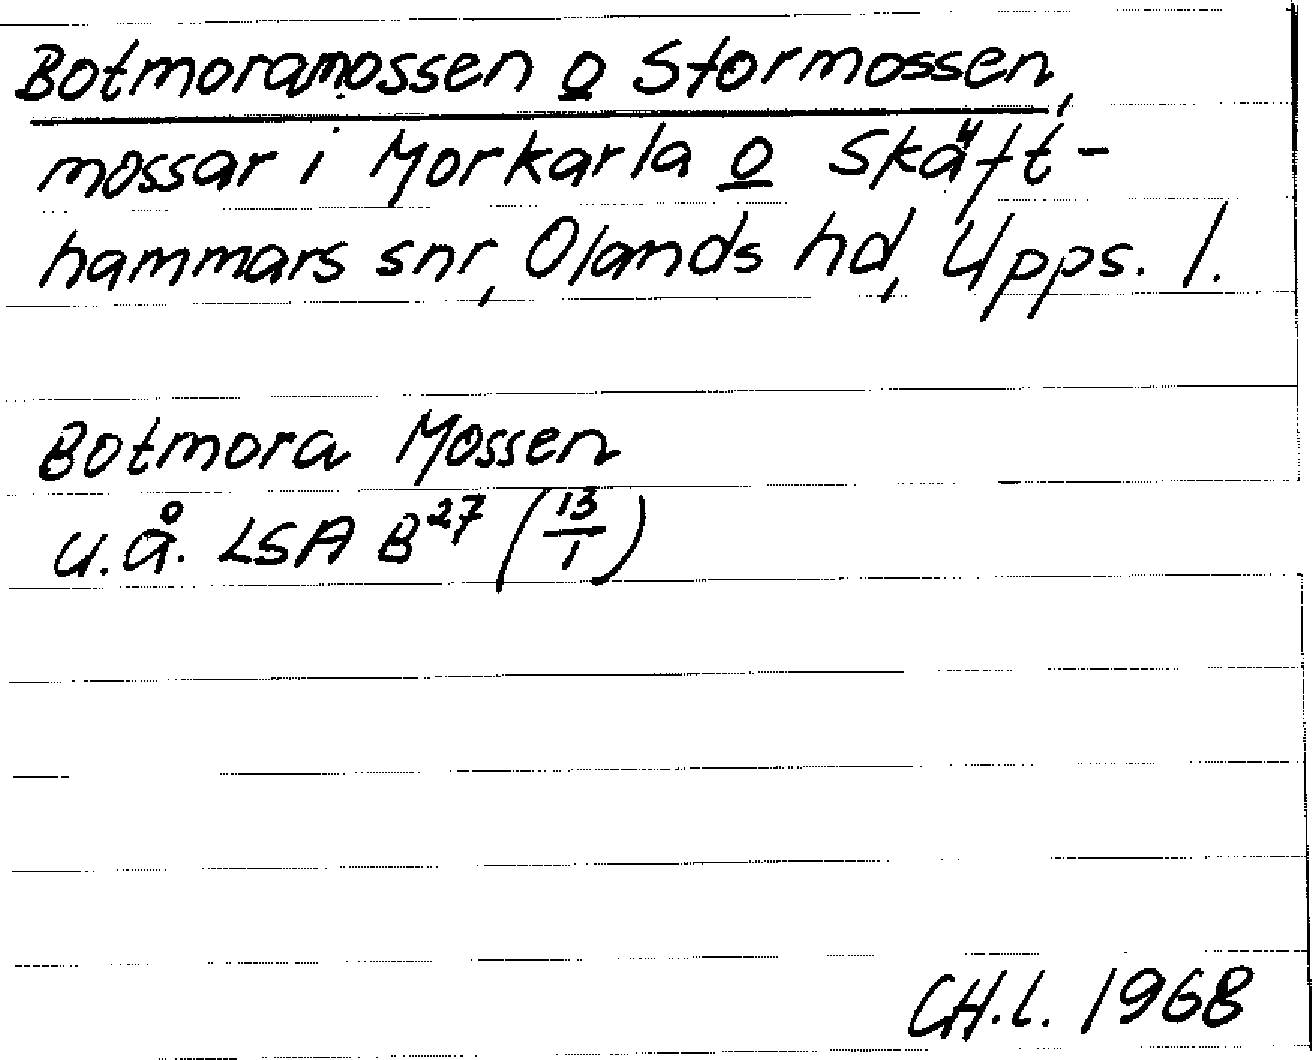 Botmoramossen o Stormossen,
mossar i Morkarla o Skäft-
hammars snr, Olands hd, Upps. l.
Botmora Mossen
u.å. LSA B²⁷ (13/1)
CH.L. 1968